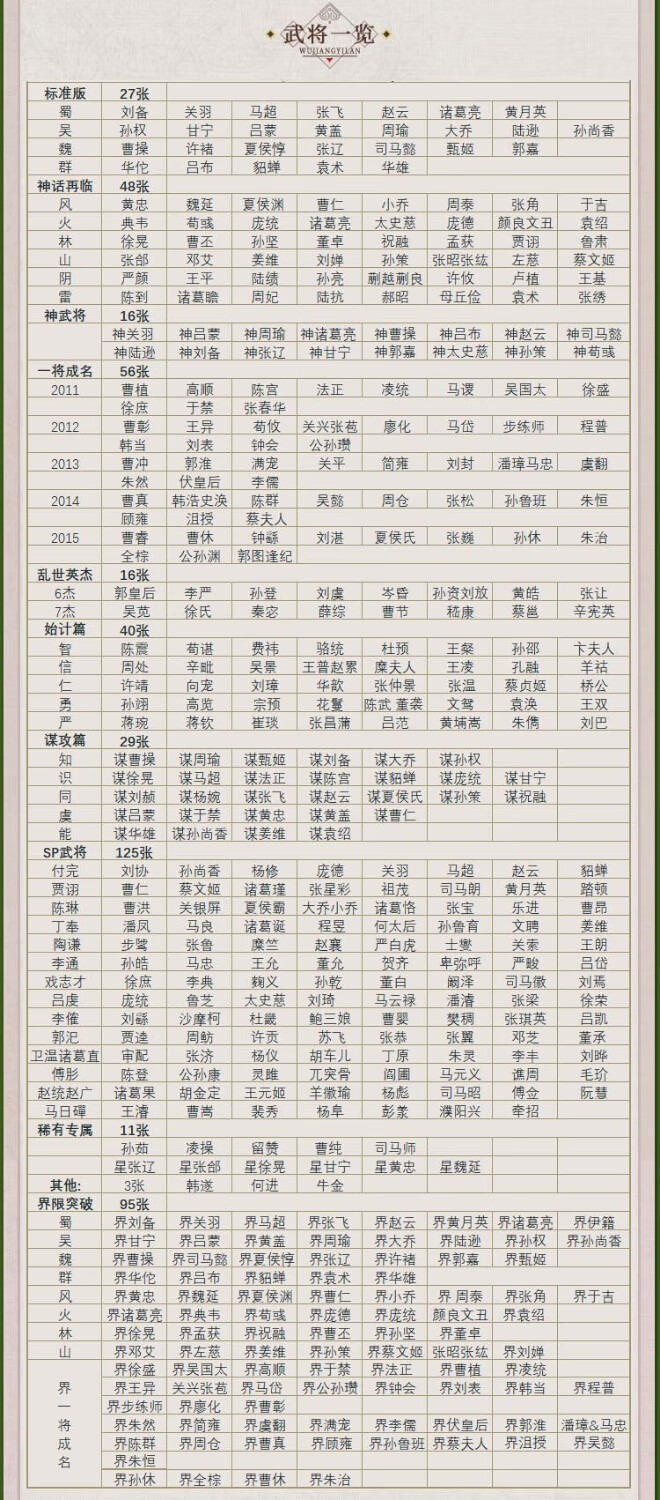 武将一览
WUJIANGYILAN
标准版 27张
蜀 刘备 关羽 马超 张飞 赵云 诸葛亮 黄月英
吴 孙权 甘宁 吕蒙 黄盖 周瑜 大乔 陆逊 孙尚香
魏 曹操 许褚 夏侯惇 张辽 司马懿 甄姬 郭嘉
群 华佗 吕布 貂蝉 袁术 华雄
神话再临 48张
风 黄忠 魏延 夏侯渊 曹仁 小乔 周泰 张角 于吉
火 典韦 荀彧 庞统 诸葛亮 太史慈 庞德 颜良文丑 袁绍
林 徐晃 曹丕 孙坚 董卓 祝融 孟获 贾诩 鲁肃
山 张郃 邓艾 姜维 刘婵 孙策 张昭张纮 左慈 蔡文姬
阴 严颜 王平 陆绩 孙亮 蒯越蒯良 许攸 卢植 王基
雷 陈到 诸葛瞻 周妃 陆抗 郝昭 母丘俭 袁术 张绣
神武将 16张
神关羽 神吕蒙 神周瑜 神诸葛亮 神曹操 神吕布 神赵云 神司马懿
神陆逊 神刘备 神张辽 神甘宁 神郭嘉 神太史慈 神孙策 神荀彧
一将成名 56张
2011 曹植 高顺 陈宫 法正 凌统 马谡 吴国太 徐盛
徐庶 于禁 张春华
2012 曹彰 王异 荀攸 关兴张苞 廖化 马岱 步练师 程普
韩当 刘表 钟会 公孙瓒
2013 曹冲 郭淮 满宠 关平 简雍 刘封 潘璋马忠 虞翻
朱然 伏皇后 李儒
2014 曹真 韩浩史涣 陈群 吴懿 周仓 张松 孙鲁班 朱恒
顾雍 沮授 蔡夫人
2015 曹睿 曹休 钟繇 刘湛 夏侯氏 张嶷 孙休 朱治
全棕 公孙渊 郭图逢纪
乱世英杰 16张
6杰 郭皇后 李严 孙登 刘虞 岑昏 孙资刘放 黄皓 张让
7杰 吴苋 徐氏 秦宓 薛综 曹节 嵇康 蔡邕 辛宪英
始计篇 40张
智 陈震 荀谌 费祎 骆统 杜预 王粲 孙邵 卞夫人
信 周处 辛毗 吴景 王普赵累 糜夫人 王凌 孔融 羊祜
仁 许靖 向宠 刘璋 华歆 张仲景 张温 蔡贞姬 桥公
勇 孙翊 高览 宗预 花鬘 陈武 董袭 文鸳 袁涣 王双
严 蒋琬 蒋钦 崔琰 张昌蒲 吕范 黄埔嵩 朱儁 刘巴
谋攻篇 29张
知 谋曹操 谋周瑜 谋甄姬 谋刘备 谋大乔 谋孙权
识 谋徐晃 谋马超 谋法正 谋陈宫 谋貂蝉 谋庞统 谋甘宁
同 谋刘赪 谋杨婉 谋张飞 谋赵云 谋夏侯氏 谋孙策 谋祝融
虞 谋吕蒙 谋于禁 谋黄忠 谋黄盖 谋曹仁
能 谋华雄 谋孙尚香 谋姜维 谋袁绍
SP武将 125张
付完 刘协 孙尚香 杨修 庞德 关羽 马超 赵云 貂蝉
贾诩 曹仁 蔡文姬 诸葛瑾 张星彩 祖茂 司马朗 黄月英 踏顿
陈琳 曹洪 关银屏 夏侯霸 大乔小乔 诸葛恪 张宝 乐进 曹昂
丁奉 潘凤 马良 诸葛诞 程昱 何太后 孙鲁育 文聘 姜维
陶谦 步骘 张鲁 糜竺 赵襄 严白虎 士燮 关索 王朗
李通 孙皓 马忠 王允 董允 贺齐 卑弥呼 严畯 吕岱
戏志才 徐庶 李典 麹义 孙乾 董白 阚泽 司马徽 刘焉
吕虔 庞统 鲁芝 太史慈 刘琦 马云禄 潘濬 张梁 徐荣
李傕 刘繇 沙摩柯 杜畿 鲍三娘 曹婴 樊稠 张琪英 吕凯
郭汜 贾逵 周鲂 许贡 苏飞 张恭 张翼 邓芝 董承
卫温诸葛直 审配 张济 杨仪 胡车儿 丁原 朱灵 李丰 刘晔
傅肜 陈登 公孙康 灵雎 兀突骨 阎圃 马元义 谯周 毛玠
赵统赵广 诸葛果 胡金定 王元姬 羊徽瑜 杨彪 司马昭 傅佥 阮慧
马日磾 王濬 曹嵩 裴秀 杨阜 彭羕 濮阳兴 牵招
稀有专属 11张
孙茹 凌操 留赞 曹纯 司马师
星张辽 星张郃 星徐晃 星甘宁 星黄忠 星魏延
其他: 3张 韩遂 何进 牛金
界限突破 95张
蜀 界刘备 界关羽 界马超 界张飞 界赵云 界黄月英 界诸葛亮 界伊籍
吴 界甘宁 界吕蒙 界黄盖 界周瑜 界大乔 界陆逊 界孙权 界孙尚香
魏 界曹操 界司马懿 界夏侯惇 界张辽 界许褚 界郭嘉 界甄姬
群 界华佗 界吕布 界貂蝉 界袁术 界华雄
风 界黄忠 界魏延 界夏侯渊 界曹仁 界小乔 界 周泰 界张角 界于吉
火 界诸葛亮 界典韦 界荀彧 界庞德 界庞统 颜良文丑 界袁绍
林 界徐晃 界孟获 界祝融 界曹丕 界孙坚 界董卓
山 界邓艾 界左慈 界姜维 界孙策 界蔡文姬 张昭张纮 界刘婵
界一将成名
界徐盛 界吴国太 界高顺 界于禁 界法正 界曹植 界凌统
界王异 关兴张苞 界马岱 界公孙瓒 界钟会 界刘表 界韩当 界程普
界步练师 界廖化 界曹彰
界朱然 界简雍 界虞翻 界满宠 界李儒 界伏皇后 界郭淮 潘璋&马忠
界陈群 界周仓 界曹真 界顾雍 界孙鲁班 界蔡夫人 界沮授 界吴懿
界朱恒
界孙休 界全棕 界曹休 界朱治